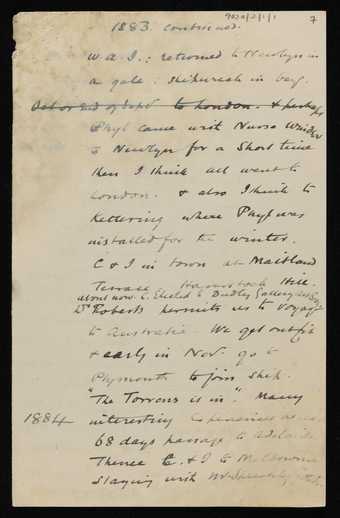 9020/2/1/1
7
1883. continued.
W. a. I. : returned to Newlyn in
a gale. Shipwreck in bay.
Oct or End of Sept to London. & perhaps
Phyl came with Nurse
to Newlyn for a short time
then I think all went to
London. & also I think to
Kettering where Phyl was
installed for the winter.
C & I in town at Maitland
Terrace Haverstock Hill.
about now C. Elected to Dudley Gallery
Dr Roberts permits us to voyage
to Australia. We get outfit
& early in Nov. go to
Plymouth to join ship.
"The Torrens is in". Many
1884 interesting experiences
68 days passage to Adelaide
Thence C. & I to Melbourne
staying with